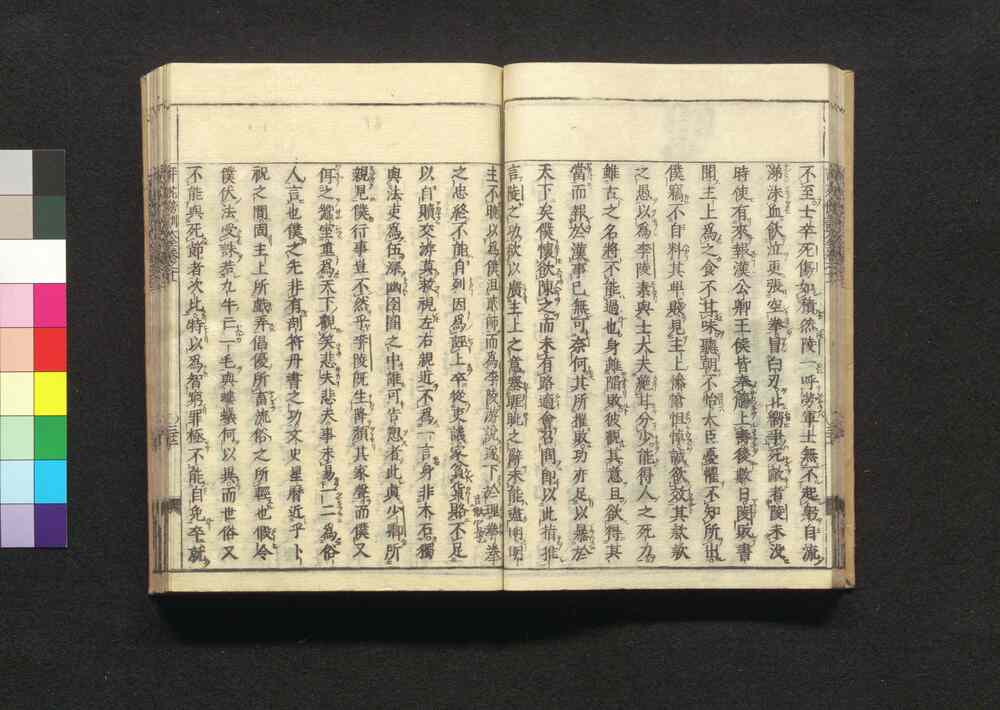 不至士卒死傷如積然陵一呼勞軍士無不起躬自流
涕沬血飲泣更張空拳冒白刃北嚮爭死敵者陵未沒
時使有來報漢公卿王侯皆奉觴上壽後數日陵敗書
聞主上爲之食不甘味聽朝不怡大臣憂懼不知所出
僕竊不自料其卑賤見主上慘愴怛悼誠欲效其款款
之愚以爲李陵素與士大夫絶甘分少能得人之死力
雖古之名將不能過也身雖陷敗彼觀其意且欲得其
當而報於漢事已無可奈何其所摧敗功亦足以暴於
天下矣僕懷欲陳之而未有路適會召問即以此指推
言陵之功欲以廣主上之意塞睚眦之辭未能盡明明
主不曉以爲僕沮貳師而爲李陵游說遂下於理拳拳
之忠終不能自列因爲誣上卒從吏議家貧貨賂不足
以自贖交游莫救視左右親近不爲一言身非木石獨
與法吏爲伍深幽囹圄之中誰可告愬者此眞少卿所
親見僕行事豈不然乎李陵既生降頹其家聲而僕又
佴之蠶室重爲天下觀笑悲夫悲夫事未易一二爲俗
人言也僕之先非有剖符丹書之功文史星曆近乎卜
祝之間固主上所戲弄倡優所畜流俗之所輕也假令
僕伏法受誅若九牛亡一毛與螻蟻何以異而世俗又
不能與死節者次比特以爲智窮罪極不能自免卒就